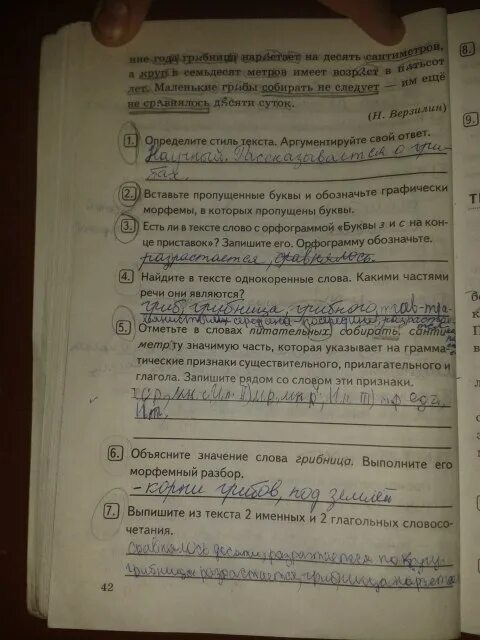 ние года грибница нарастает на десять сантиметров,
а круг в семьдесят метров имеет возраст в пятьсот
лет. Маленькие грибы собирать не следует — им ещё
не сравнялось десяти суток.
(Н. Верзилин)
1. Определите стиль текста. Аргументируйте свой ответ.
Научный. Рассказывается о гри-
бах.
2. Вставьте пропущенные буквы и обозначьте графически
морфемы, в которых пропущены буквы.
3. Есть ли в тексте слово с орфограммой «Буквы з и с на кон-
це приставок»? Запишите его. Орфограмму обозначьте.
разрастается, сравнялось.
4. Найдите в тексте однокоренные слова. Какими частями
речи они являются?
гриб, грибница, грибного
5. Отметьте в словах питательных собирать, санти-
метр ту значимую часть, которая указывает на грамма-
тические признаки существительного, прилагательного и
глагола. Запишите рядом со словом эти признаки.
6. Объясните значение слова грибница. Выполните его
морфемный разбор.
- корни грибов, под землей
7. Выпишите из текста 2 именных и 2 глагольных словосо-
четания.
сравнялось десяти, разрастается по кругу
грибница разрастается, грибница нараста
42
8.
9.